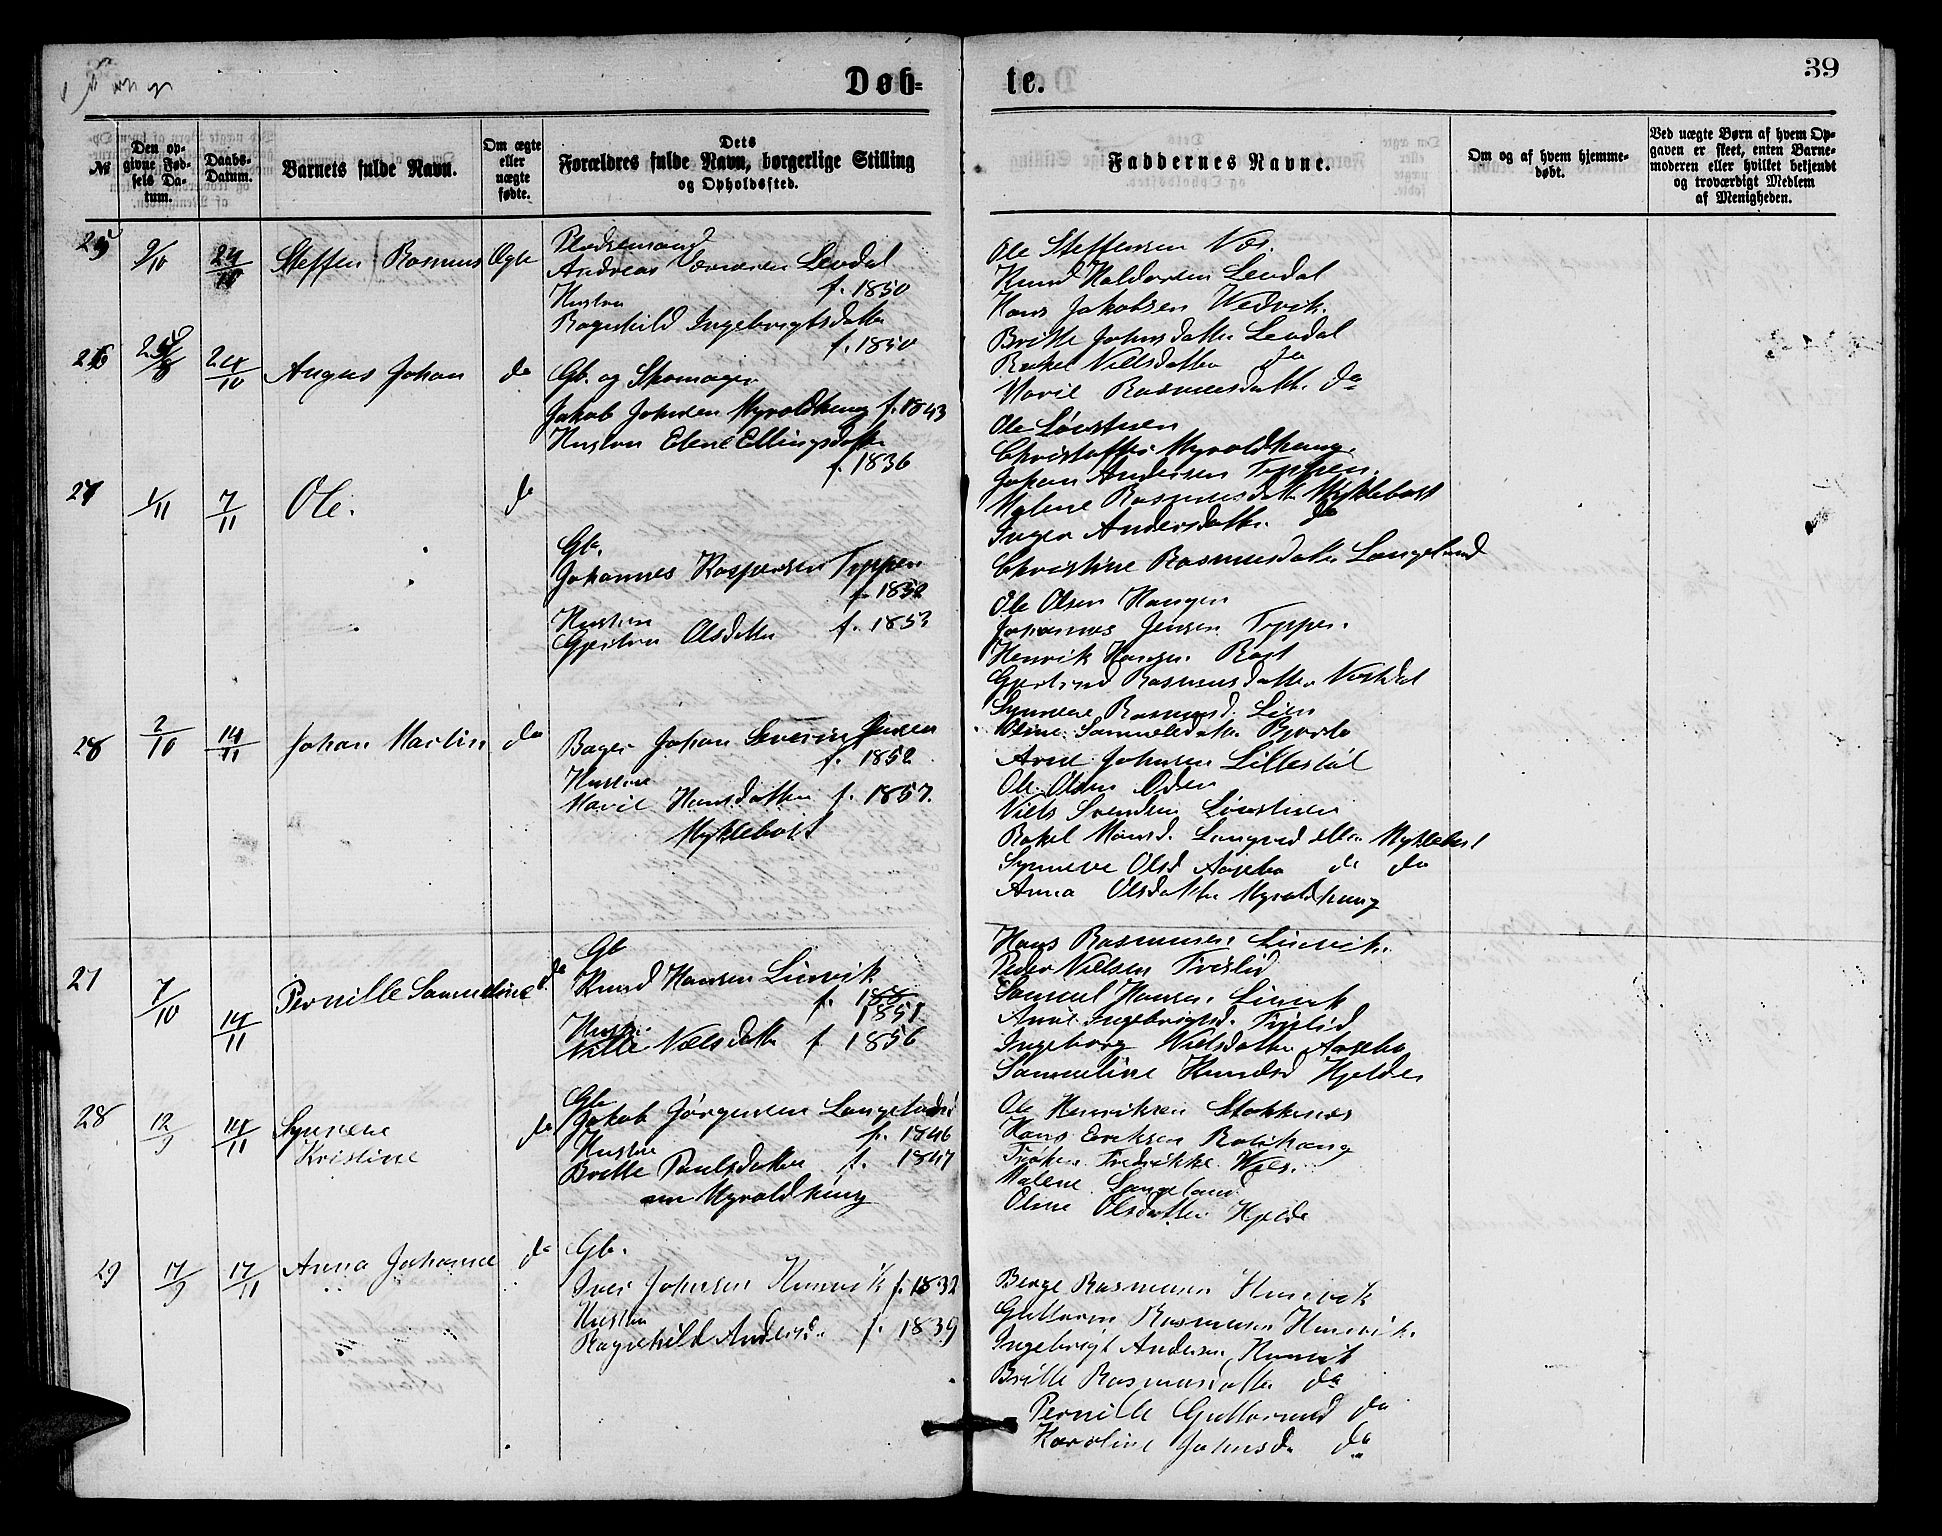 Døb=
te.
39
№
Den op-
givne Fød-
sels Da-
tum.
Daabs-
Datum.
Barnets fulde Navn.
Om ægte
eller
uægte
fødte.
Dets
Forældres fulde Navn, borgerlige Stilling
og Opholdssted.
Faddernes Navne.
Om og af hvem hjemme-
døbt.
Ved uægte Børn af hvem Op-
gaven er skeet, enten Barne-
moderen eller hvilket bekjendt
og troværdigt Medlem
af Menigheden.
25 9/10 24/10 Steffen Rasmus Ægte
Pladsemand
Andreas Levdal
f. 1850
Hustru
Ragnhild Ingebrigtsdatter
f. 1850
Ole Steffensen Næs.
Knud Haldorsen Levdal
Hans Jakobsen Wedvik.
Britte Johnsdatter Levdal
Rakel Nielsdatter do
Marie Rasmusdatter do
26 24/10 August Johan do
Gb. og Skomager
Jakob Johnsen Myroldhaug f. 1843
Hustru Elene Ellingsdatter
f. 1836
Ole Løvstuen
Christoffer Myroldhaug.
Johan Andersen Typpen.
Malene Rasmusdatter Myklebost
Inger Andersdatter do
Christine Rasmusdatter Langeland
27 1/11 7/11 Ole. do
Gb.
Johannes Kaspersen Typpen
Hustru
Gjertru Olsdatter f. 1853
Ole Olsen Haugen
Johannes Jensen Typpen.
Henrik Hansen
Gjertrud Rasmusdatter
Synneve Rasmusd. Lien
Oline Samuelsdatter
28 2/10 14/11 Johan Martin do
Bager Johan Severin Jensen
f. 1852
Hustru
Marie Hansdatter f. 1857.
Myklebost
Arne Johnsen Lillestøl
Ole Olsen Øden
Niels Svendsen Løvstuen
Rakel Monsd. Myklebost
Synneve Olsd Aasebø do do
Anna Olsdatter Myroldhaug
27 7/10 14/11 Pernille Samueline do
Gb
Knud Hansen Linvik
f. 1851.
Hustru
Nille Nielsdatter f 1856
Hans Rasmusen Linvik.
Peder Nielsen Tvislid
Samuel Hansen Linvik
Anne Ingebrigtsd. Tvislid
Ingeborg Nielsdatter Aasebø
Samueline Knudsd Hjelde
28 12/9 14/11 Synneve
Kristine do
Gb
Jakob Jørgensen Langeland
f. 1846
Hustru
Britte Paulsdatter f. 1847
Myroldhaug
Ole Henriksen Stokkenæs
Hans Eriksen
Frøken Fredrikke
Malene Langeland
Oline Olsdatter Hjelde
29 17/9 17/11 Anna Johanne do
Gb.
Iver Johnsen Hunvik f. 1832
Hustru
Ragnhild Andersd. f. 1839
Berge Rasmusen Hunvik
Guttorm Rasmusen Hunvik.
Ingebrigt Andersen Hunvik
Britte Rasmusdatter do
Pernille Guttormsd do
Karoline Johnsd. do